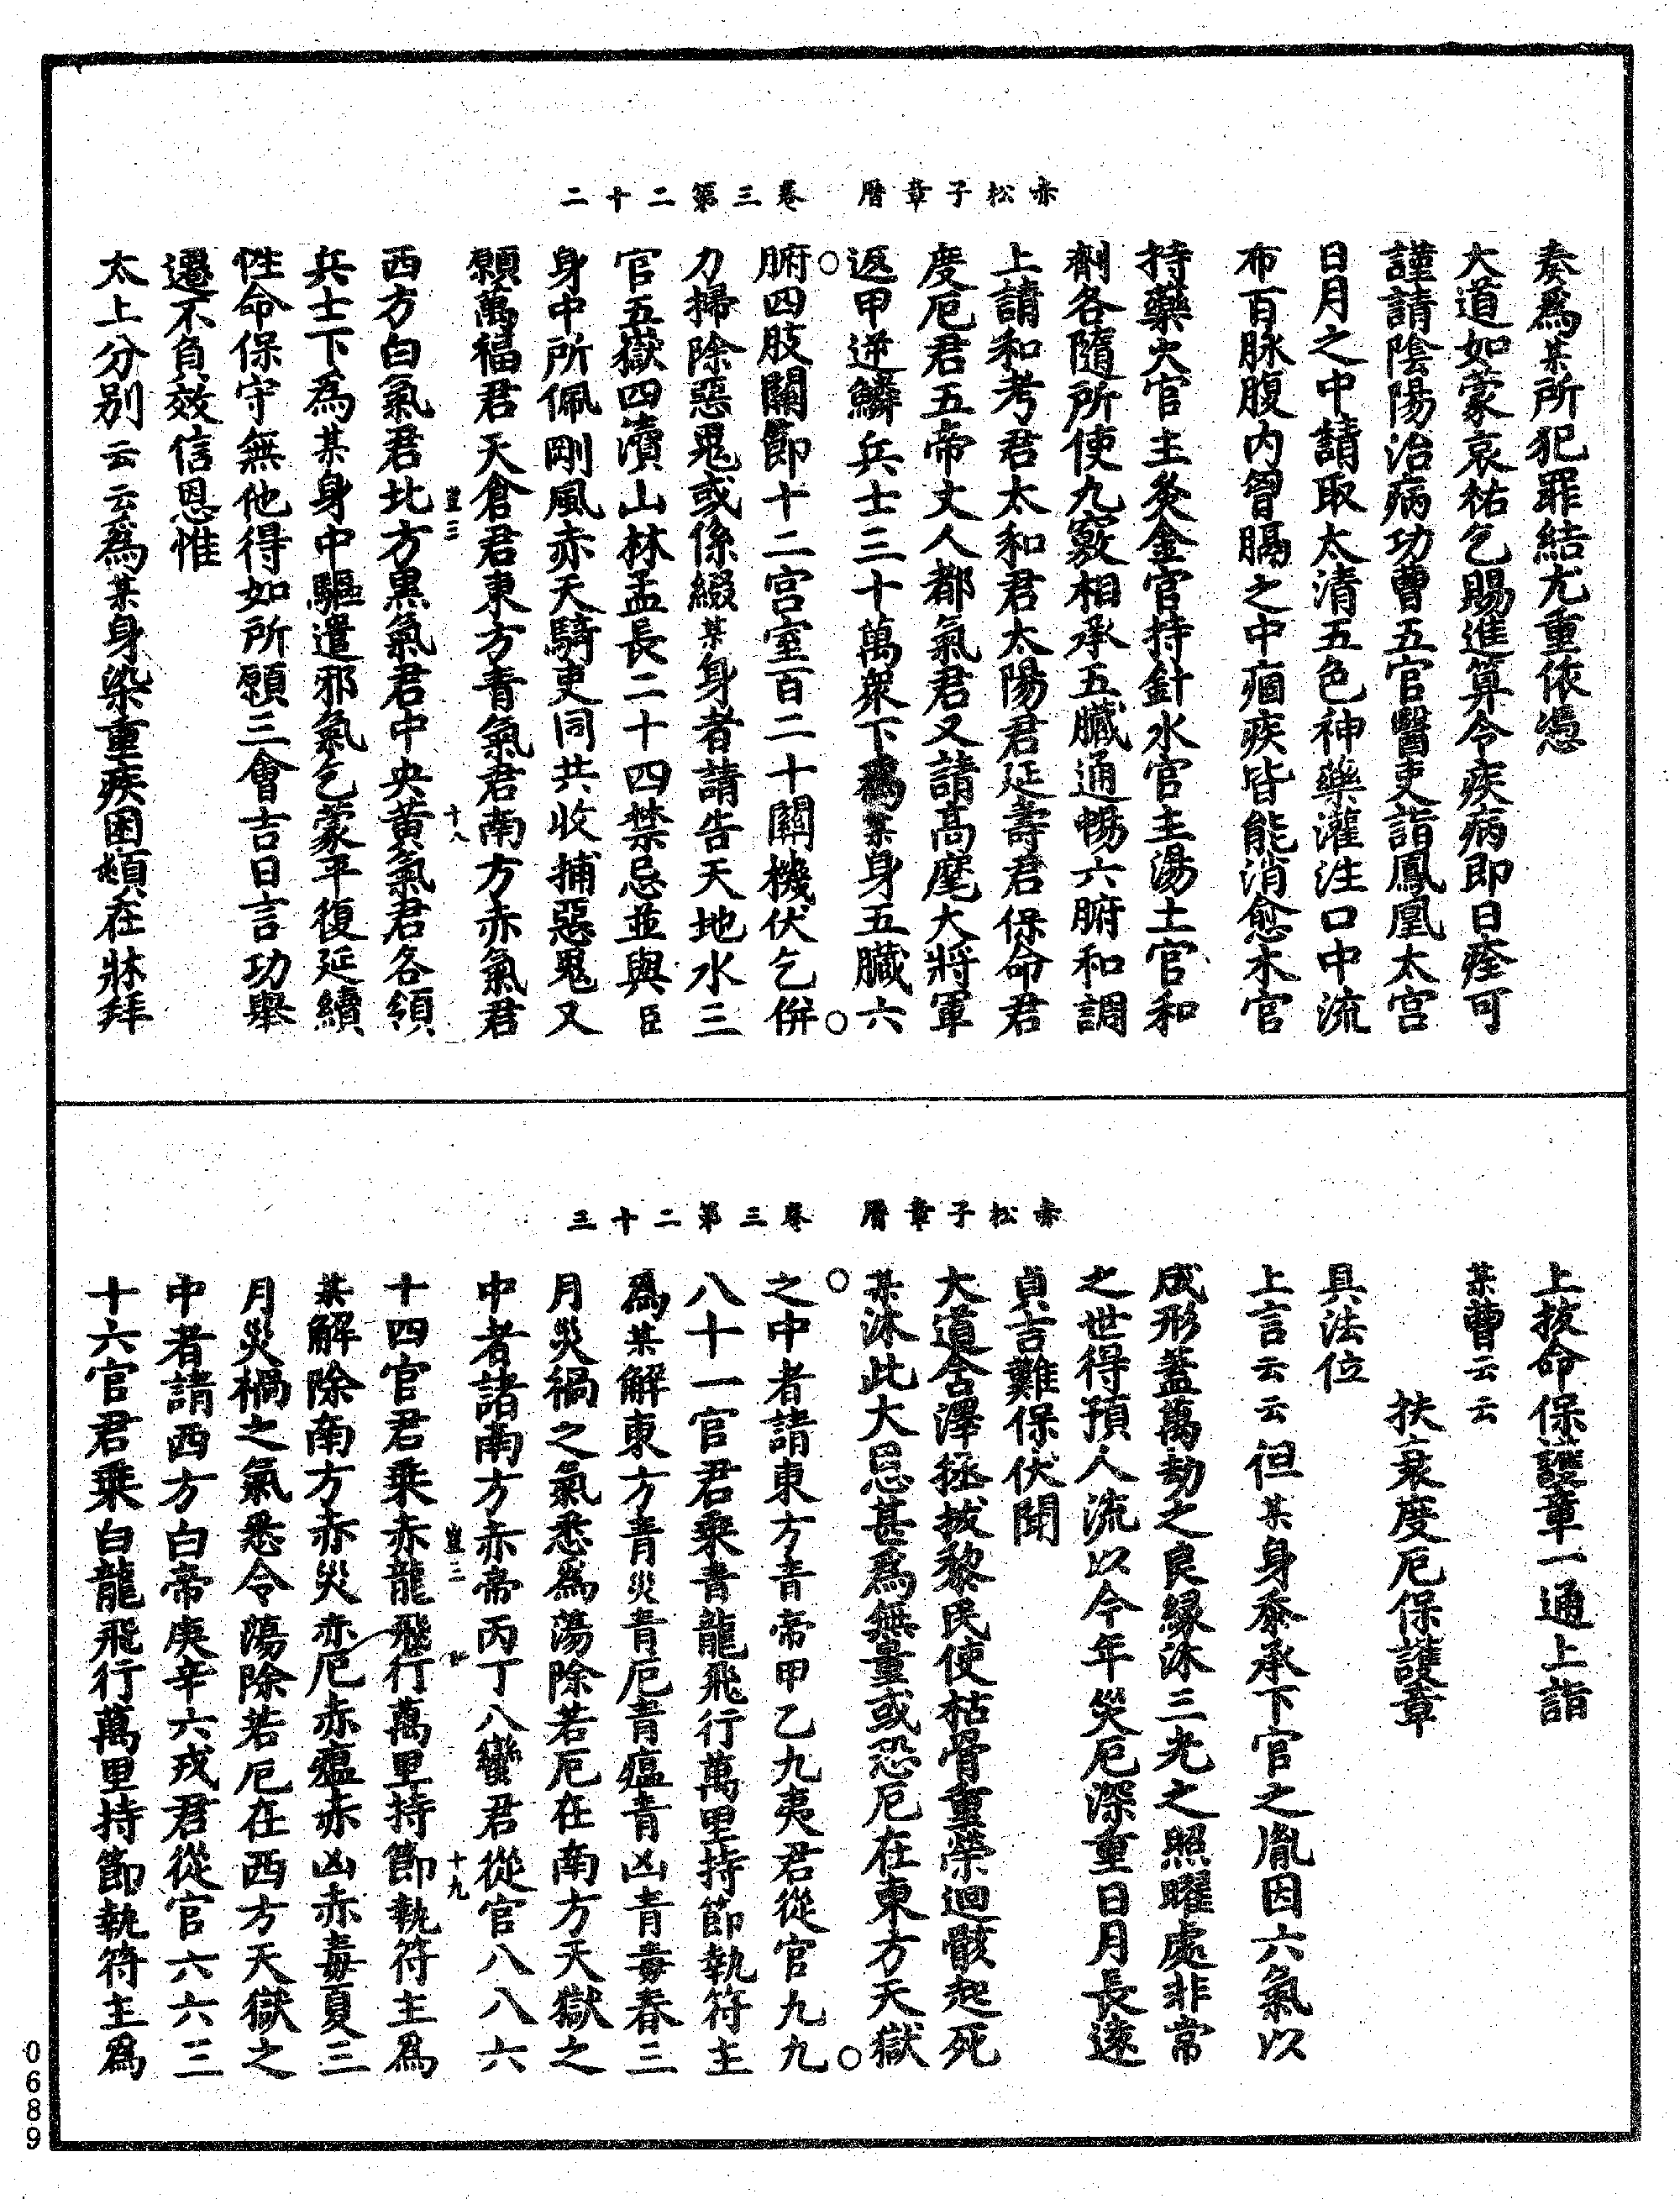 赤松子章曆　卷三第二十二
奏爲某所犯罪結尤重依憑
大道如蒙哀祐乞賜進算令疾病即日痊可
謹請陰陽治病功曹五官醫吏詣鳳凰太宫
日月之中請取太清五色神藥灌注口中流
布百脉腹内胷膈之中痼疾皆能消愈木官
持藥火官主灸金官持針水官主湯土官和
劑各隨所使九竅相承五臟通暢六腑和調
上請和考君太和君太陽君延壽君保命君
度厄君五帝丈人都氣君又請高麾大將軍
返甲逆鱗兵士三十萬衆下爲某身五臟六
腑四肢關節十二宫室百二十關機伏乞併
力掃除惡鬼或係綴某身者請告天地水三
官五嶽四瀆山林孟長二十四禁忌並與臣
身中所佩剛風赤天騎吏同共收捕惡鬼又
願萬福君天倉君東方青氣君南方赤氣君
豈三　十八
西方白氣君北方黑氣君中央黄氣君各領
兵士下爲某身中驅遣邪氣乞蒙平復延續
性命保守無他得如所願三會吉日言功舉
遷不負效信恩惟
太上分别云云爲某身染重疾困頓在牀拜
赤松子章曆　卷三第二十三
上拔命保護章一通上詣
某曹云云
扶衰度厄保護章
具法位
上言云云但某身忝承下官之胤因六氣以
成形蓋萬劫之良縁沐三光之照曜處非常
之世得預人流以今年災厄深重日月長遠
貞吉難保伏聞
大道含澤拯拔黎民使枯骨重榮迴骸起死
某沐此大恩甚爲無量或恐厄在東方天獄
之中者請東方青帝甲乙九夷君從官九九
八十一官君乘青龍飛行萬里持節執符主
爲某解東方青災青厄青瘟青凶青毒春三
月災禍之氣悉爲蕩除若厄在南方天獄之
中者諸南方赤帝丙丁八蠻君從官八八六
豈三　十九
十四官君乘赤龍飛行萬里持節執符主爲
某解除南方赤災赤厄赤瘟赤凶赤毒夏三
月災禍之氣悉令蕩除若厄在西方天獄之
中者請西方白帝庚辛六戎君從官六六三
十六官君乘白龍飛行萬里持節執符主爲
0689